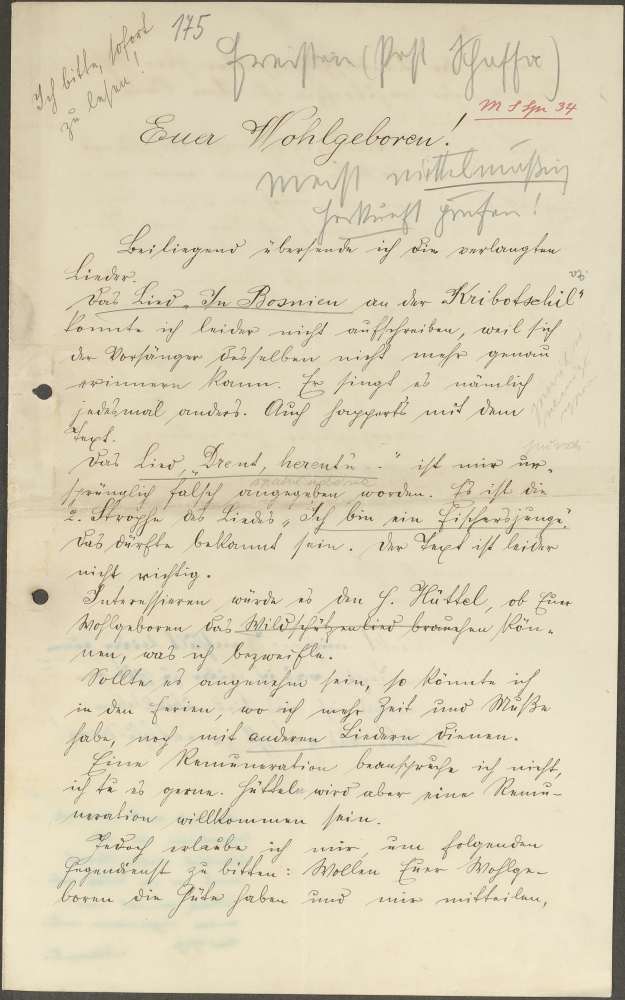 Ich bitte, sofort
zu lesen!
175
Freistein (Post Schaffa)
M S Spr 34
Euer Wohlgeboren!
meist mittelmäßig
Herkunft prüfen!
Beiliegend übersende ich die verlangten
Lieder.
Das Lied „In Bosnien an der Kribotschil"
konnte ich leider nicht aufschreiben, weil sich
der Vorsänger desselben nicht mehr genau
erinnern kann. Er singt es nämlich
jedesmal anders. Auch happert's mit dem
Text.
Das Lied „Drent, herent' ..." ist mir ur-
sprünglich falsch angegeben worden. Es ist die
2. Strophe des Liedes „Ich bin ein Fischersjunge",
das dürfte bekannt sein. Der Text ist leider
nicht richtig.
Interessieren würde es den H. Hüttel, ob Euer
Wohlgeboren das Wildschützenlied brauchen kön-
nen, was ich bezweifle.
Sollte es angenehm sein, so könnte ich
in den Ferien, wo ich mehr Zeit und Muße
habe, noch mit anderen Liedern dienen.
Eine Remuneration beanspruche ich nicht,
ich tu es gerne. Hütteln wird aber eine Remu-
neration willkommen sein.
Jedoch erlaube ich mir, um folgenden
Gegendienst zu bitten: Wollen Euer Wohlge-
boren die Güte haben und mir mitteilen,